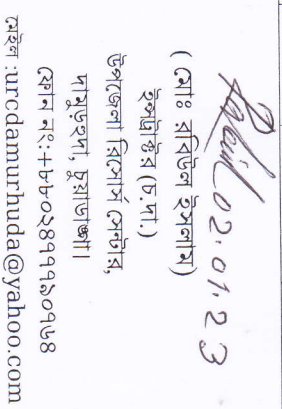 02.01.23
(মোঃ রবিউল ইসলাম)
ইন্সট্রাক্টর (চ.দা.)
উপজেলা রিসোর্স সেন্টার,
দামুড়হুদা, চুয়াডাঙ্গা।
ফোন নং:+৮৮০২৪৭৭৭৯০৭৬৪
মেইল :urcdamurhuda@yahoo.com